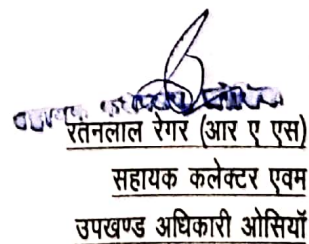 रतनलाल रेगर (आर ए एस)
सहायक कलेक्टर एवम
उपखण्ड अधिकारी ओसियॉ